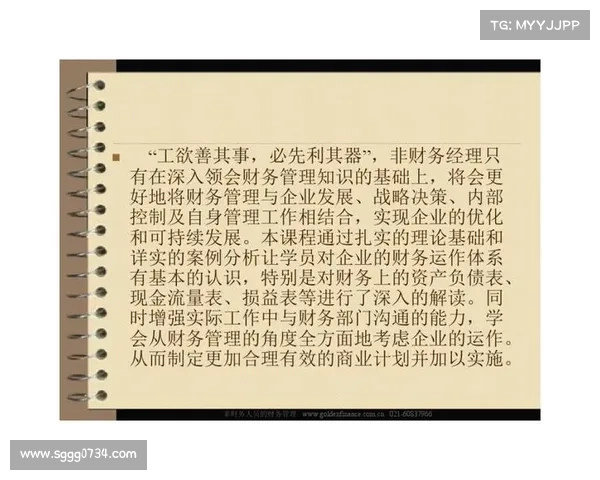 TG: MYYJJPP
“工欲善其事，必先利其器”，非财务经理只
有在深入领会财务管理知识的基础上，将会更
好地将财务管理与企业发展、战略决策、内部
控制及自身管理工作相结合，实现企业的优化
和可持续发展。本课程通过扎实的理论基础和
详实的案例分析让学员对企业的财务运作体系
有基本的认识，特别是对财务上的资产负债表、
现金流量表、损益表等进行了深入的解读。同
时增强实际工作中与财务部门沟通的能力，学
会从财务管理的角度全方面地考虑企业的运作。
从而制定更加合理有效的商业计划并加以实施。
非财务人员的财务管理 www.goldenfinance.com.cn 021-60837966
www.sggg0734.com